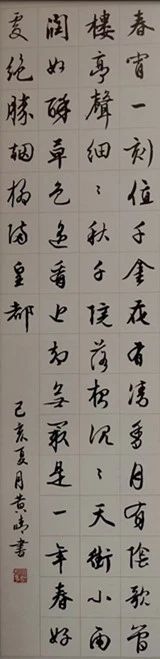 春宵一刻值千金花有清香月有陰歌管
樓亭聲細〻秋千院落夜沉〻天街小雨
潤如酥草色遙看近却無最是一年春好
處絕勝烟柳滿皇都
己亥夏月黄書